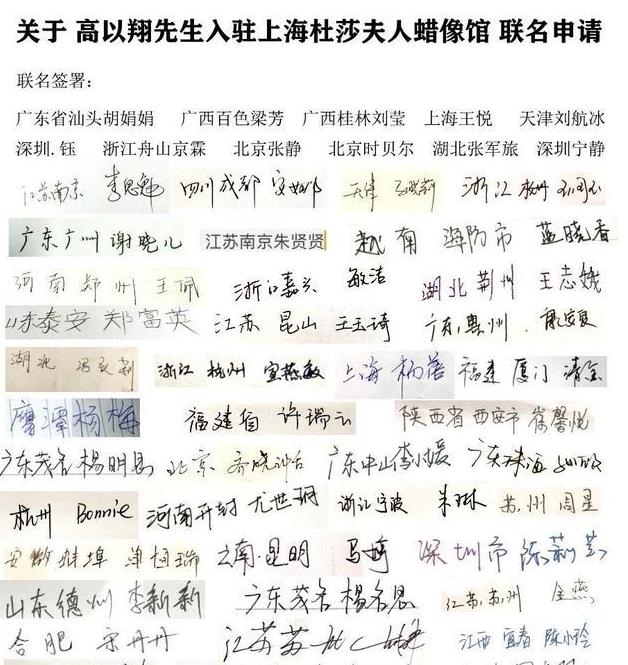 关于 高以翔先生入驻上海杜莎夫人蜡像馆 联名申请
联名签署：
广东省汕头胡娟娟 广西百色梁芳 广西桂林刘莹 上海王悦 天津刘航冰
深圳.钰 浙江舟山京霖 北京张静 北京时贝尔 湖北张军旅 深圳宁静
江苏南京 四川成都 天津 浙江 杭州
广东广州 谢晓儿 江苏南京朱贤贤 越南 海防市 蓝晓香
河南 郑州 王佩 浙江嘉兴 敏洁 湖北荆州 王志娥
山东泰安 郑富英 江苏 昆山 王玉琦 广东惠州
湖北 浙江 杭州 宣燕敏 上海 福建 厦门
鹰潭杨梅 福建省 许瑞云 陕西省 西安市 崔馨悦
广东茂名 杨明恩 北京 广东中山李小媛 广东珠海
杭州 Bonnie 河南开封 尤世玥 浙江宁波 朱琳 苏州 周星
安徽蚌埠 云南.昆明 马 深圳市 陈莉
山东德州 李新新 广东茂名 杨名恩 江苏.苏州 金燕
合肥 宋丹丹 江苏苏州 江西 宜春 陈小玲